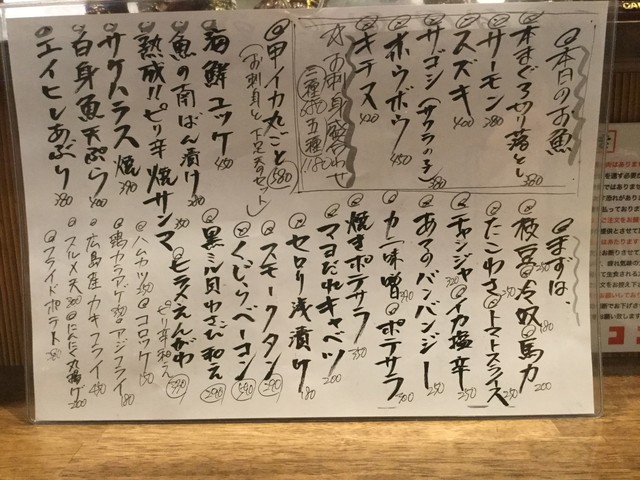 本日のお魚
本まぐろ切り落とし 380
サーモン 280
スズキ 400
サゴシ(サワラの子) 380
ホウボウ 450
キチヌ 420
☆お刺身盛合わせ
三種 680 五種 1180
甲イカ丸ごと 580
(お刺身と下足天のセット)
海鮮ユッケ 450
魚の南ばん漬け 280
熟成!!ピリ辛焼サンマ 350
サケハラス焼 390
白身魚天ぷら 400
エイヒレあぶり 380
まずは、
枝豆 250 冷奴 180 馬力 200
たこわさ 250 トマトスライス 250
チャンジャ 320 イカ塩辛 250
あてのバンバンジー 250
カニ味噌 390 ポテサラ 300
焼きポテサラ 350
マヨだれキャベツ 200
セロリ浅漬け 180
スモークタン 290
くじらベーコン 590
黒ミル貝わさび和え 290
ヒラスえんがわ 590
ピリ辛和え
ハムカツ 350 コロッケ 150
鶏カラアゲ 350 アジフライ 180
広島産カキフライ 450
スルメ天 300 にんにく丸揚げ 200
フライドポテト 280